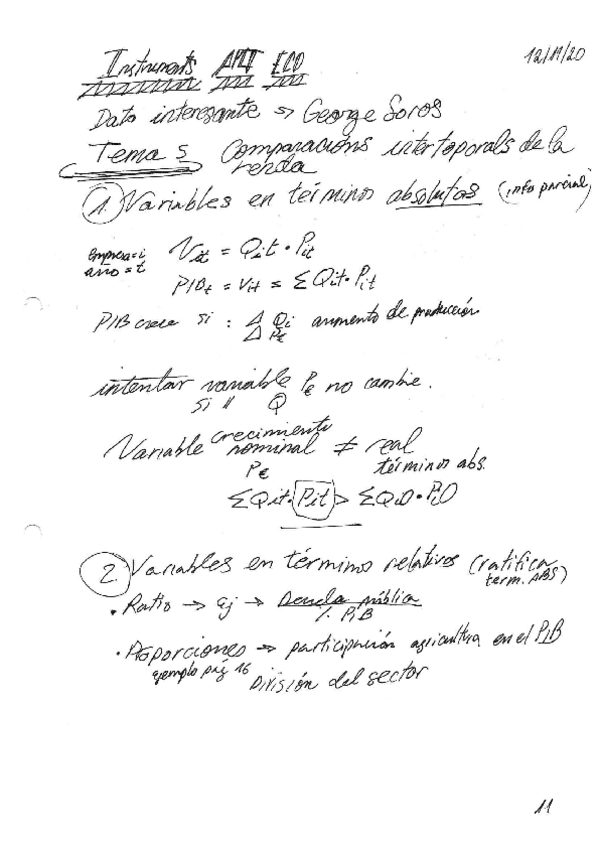 Instruments APL ECO
12/11/20
Dato interesante → George Soros
Tema 5 Comparacions intertoporals de la
renda
1. Variables en términos absolutos (info parcial)
empresa = i
año = t
Vit = Qit · Pit
PIBt = Vit = ΣQit · Pit
PIB crece si : Δ Qi aumento de producción
Δ P€
intentar variable P€ no cambie.
si " Q
crecimiento
Variable nominal ≠ real
P€ términos abs.
ΣQit · Pit > ΣQi0 · Pi0
2 Variables en término relativos (ratifica
term. ABS)
• Ratio → ej → Deuda pública
/. PIB
• Proporciones → participación agricultura en el PIB
ejemplo pág 16 División del sector
11